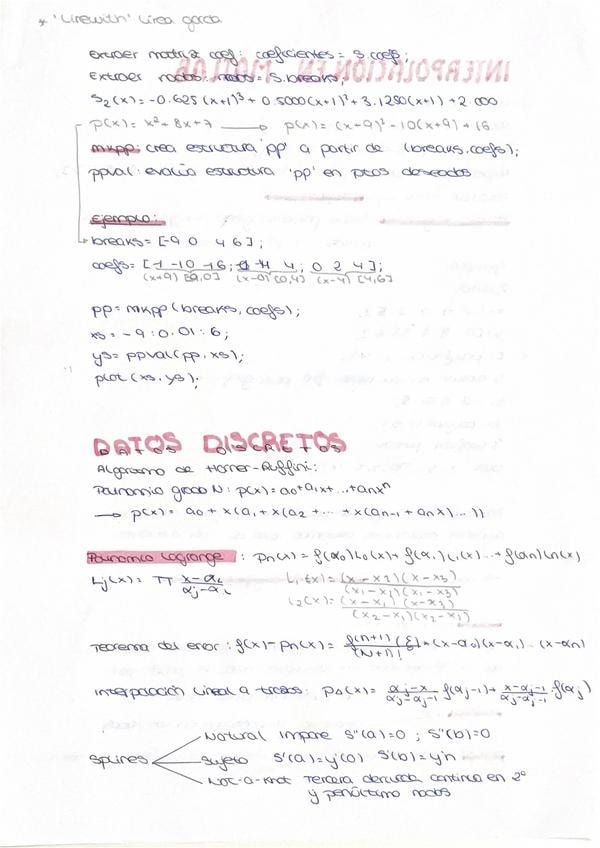 * 'Linewith' Línea gorda
Extraer matriz coef: coeficientes = S.coefs;
Extraer nodos: nodos = S.breaks;
S₂(x) = -0.625(x+1)³ + 0.5000(x+1)² + 3.1250(x+1) + 2.000
p(x) = x² + 8x + 7 → p(x) = (x+9)² - 10(x+9) + 16
mkpp: crea estructura 'pp' a partir de (breaks, coefs);
ppval: evalúa estructura 'pp' en ptos deseados
Ejemplo:
breaks = [-9 0 4 6];
coefs = [-1 -10 -16; 4 4; 0 2 4];
(x+9) [9,0] (x-0) [0,4] (x-4) [4,6]
pp = mkpp(breaks, coefs);
xs = -9:0.01:6;
ys = ppval(pp, xs);
plot(xs, ys);
DATOS DISCRETOS
Algoritmo de Horner-Ruffini:
Polinomio grado N: p(x) = a₀ + a₁x + ... + aₙxⁿ
→ p(x) = a₀ + x(a₁ + x(a₂ + ... + x(aₙ₋₁ + aₙx)...))
Polinomio Lagrange: pₙ(x) = f(α₀)L₀(x) + f(α₁)L₁(x)... + f(αₙ)Lₙ(x)
Lⱼ(x) = Π (x-αᵢ)/(αⱼ-αᵢ) L₁(x) = (x-x₂)(x-x₃)/(x₁-x₂)(x₁-x₃)
L₂(x) = (x-x₁)(x-x₃)/(x₂-x₁)(x₂-x₃)
Teorema del error: f(x) - pₙ(x) = f(n+1)(ξ)/(N+1)! * (x-α₀)(x-α₁)...(x-αn)
Interpolación lineal a trozos: p₀(x) = (αⱼ-x)/(αⱼ-αⱼ₋₁) f(αⱼ₋₁) + (x-αⱼ₋₁)/(αⱼ-αⱼ₋₁) f(αⱼ)
Natural Impone S''(a)=0; S''(b)=0
Splines Sujeto S'(a)=y'(0) S'(b)=y'n
Not-a-knot Tercera derivada continua en 2º
y penúltimo nodos